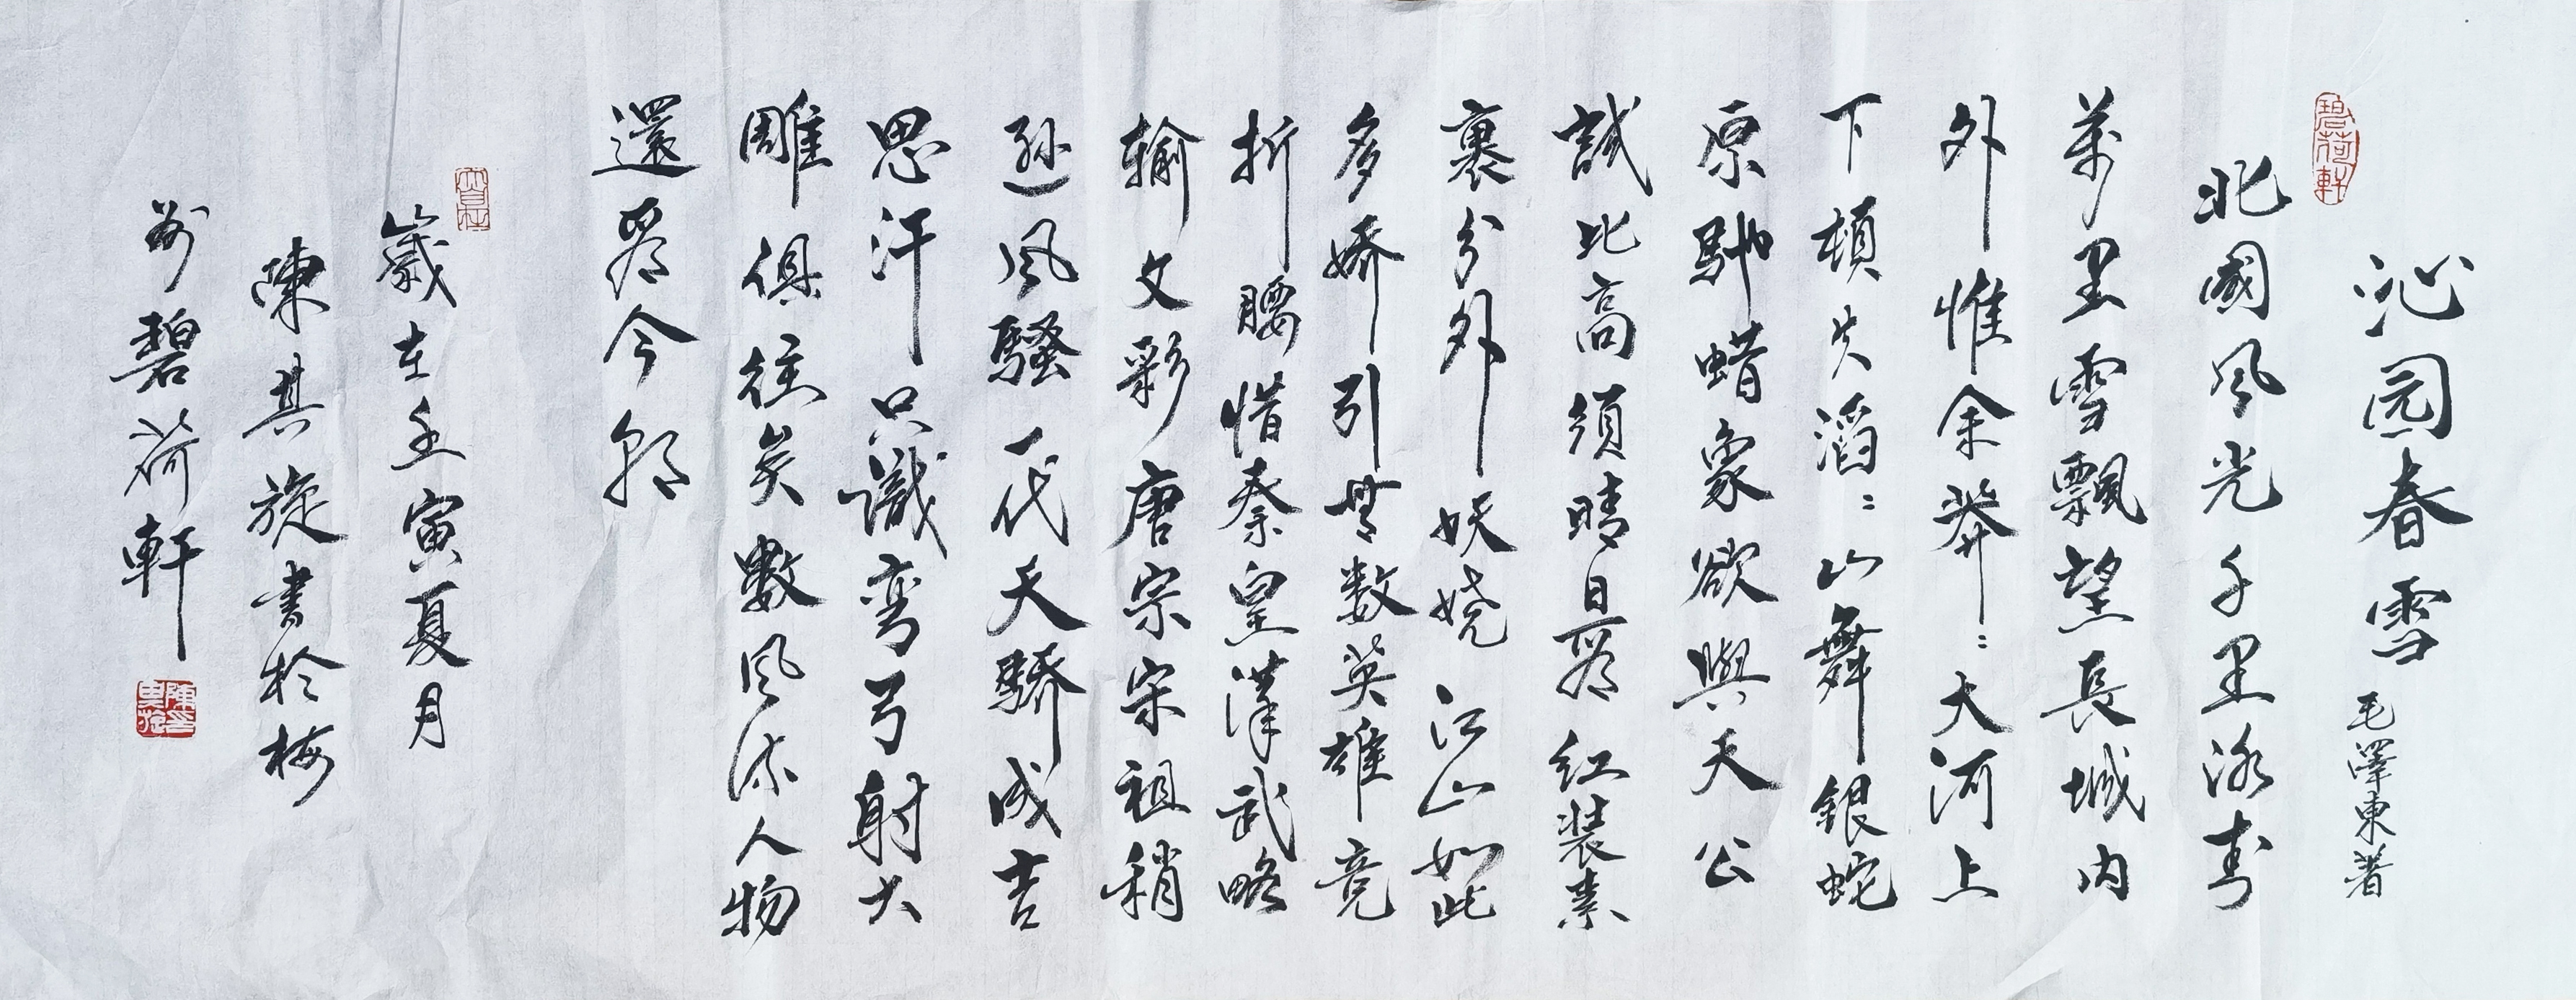 沁园春雪 毛澤東著
碧荷軒
北國风光千里冰封
萬里雪飄望長城内
外惟余莽〻大河上
下頓失滔〻山舞銀蛇
原馳蜡象欲與天公
試比高須晴日看紅装素
裹分外妖娆江山如此
多娇引無数英雄竞
折腰惜秦皇漢武略
输文彩唐宗宋祖稍
逊风騷一代天驕成吉
思汗只識弯弓射大
雕俱往矣數风流人物
還看今朝
歲在壬寅夏月
陳其旋書於梅
州碧荷軒